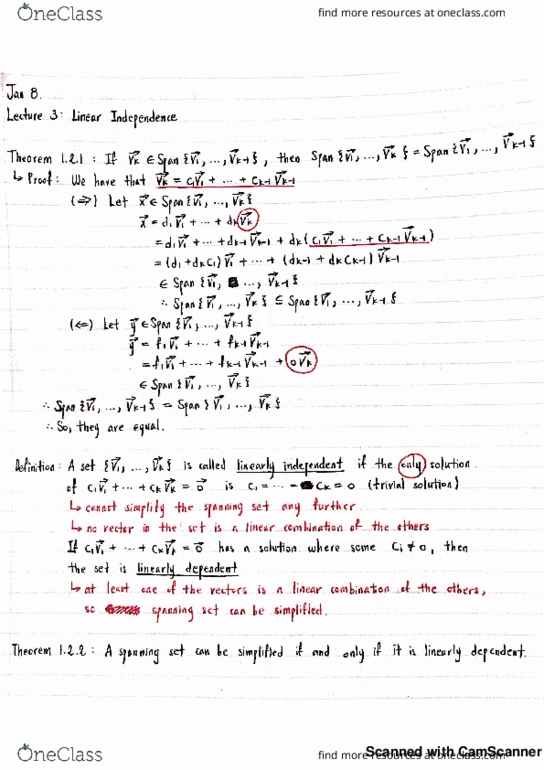 OneClass
find more resources at oneclass.com
Jan 8.
Lecture 3: Linear Independence
Theorem 1.2.1: If v⃗k ∈ Span {v⃗1, ..., v⃗k-1}, then Span {v⃗1, ..., v⃗k} = Span {v⃗1, ..., v⃗k-1}
↳ Proof: We have that v⃗k = c1v⃗1 + ... + ck-1v⃗k-1
(⇒) Let x⃗ ∈ Span {v⃗1, ..., v⃗k}
x⃗ = d1v⃗1 + ... + dkv⃗k
= d1v⃗1 + ... + dk-1v⃗k-1 + dk(c1v⃗1 + ... + ck-1v⃗k-1)
= (d1 + dkc1)v⃗1 + ... + (dk-1 + dkck-1)v⃗k-1
∈ Span {v⃗1, ..., v⃗k-1}
∴ Span {v⃗1, ..., v⃗k} ⊆ Span {v⃗1, ..., v⃗k-1}
(⇐) Let y⃗ ∈ Span {v⃗1, ..., v⃗k-1}
y⃗ = f1v⃗1 + ... + fk-1v⃗k-1
= f1v⃗1 + ... + fk-1v⃗k-1 + 0v⃗k
∈ Span {v⃗1, ..., v⃗k}
∴ Span {v⃗1, ..., v⃗k-1} = Span {v⃗1, ..., v⃗k}
∴ So, they are equal.
Definition: A set {v⃗1, ..., v⃗k} is called linearly independent if the only solution
of c1v⃗1 + ... + ckv⃗k = 0⃗ is c1 = ... = ck = 0 (trivial solution)
↳ cannot simplify the spanning set any further
↳ no vector in the set is a linear combination of the others
If c1v⃗1 + ... + ckv⃗k = 0⃗ has a solution where some ci ≠ 0, then
the set is linearly dependent
↳ at least one of the vectors is a linear combination of the others,
so spanning set can be simplified.
Theorem 1.2.2: A spanning set can be simplified if and only if it is linearly dependent.
Scanned with CamScanner
OneClass
find more resources at oneclass.com